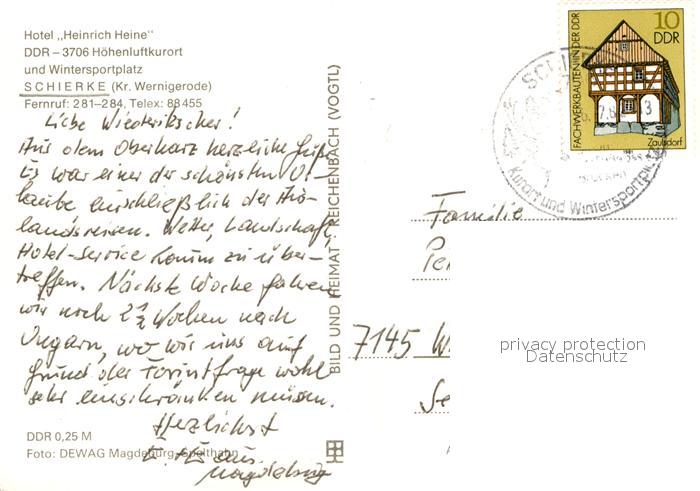 Hotel „Heinrich Heine"
DDR – 3706 Höhenluftkurort
und Wintersportplatz
SCHIERKE (Kr. Wernigerode)
Fernruf: 281–284, Telex: 88455
Liebe Wiederitzscher!
Aus dem Oberharz herzliche Grüße
Es war einer der schönsten Ur-
laube einschließlich der
landsreisen. Wetter, Landschaft,
Hotel-Service kaum zu über-
treffen. Nächste Woche fahren
wir noch 2½ Wochen nach
Ungarn, wo wir uns auf
Grund der Forintfrage wohl
sehr einschränken müssen.
Herzlichst
aus
Magdeburg
DDR 0,25 M
Foto: DEWAG Magdeburg, Spelthahn
BILD UND HEIMAT REICHENBACH (VOGTL)
FACHWERKBAUTEN IN DER DDR
10
DDR
Zaulsdorf
SCHI
Kurort und Wintersportplatz
Familie
Pe
7145 W
Se
privacy protection
Datenschutz